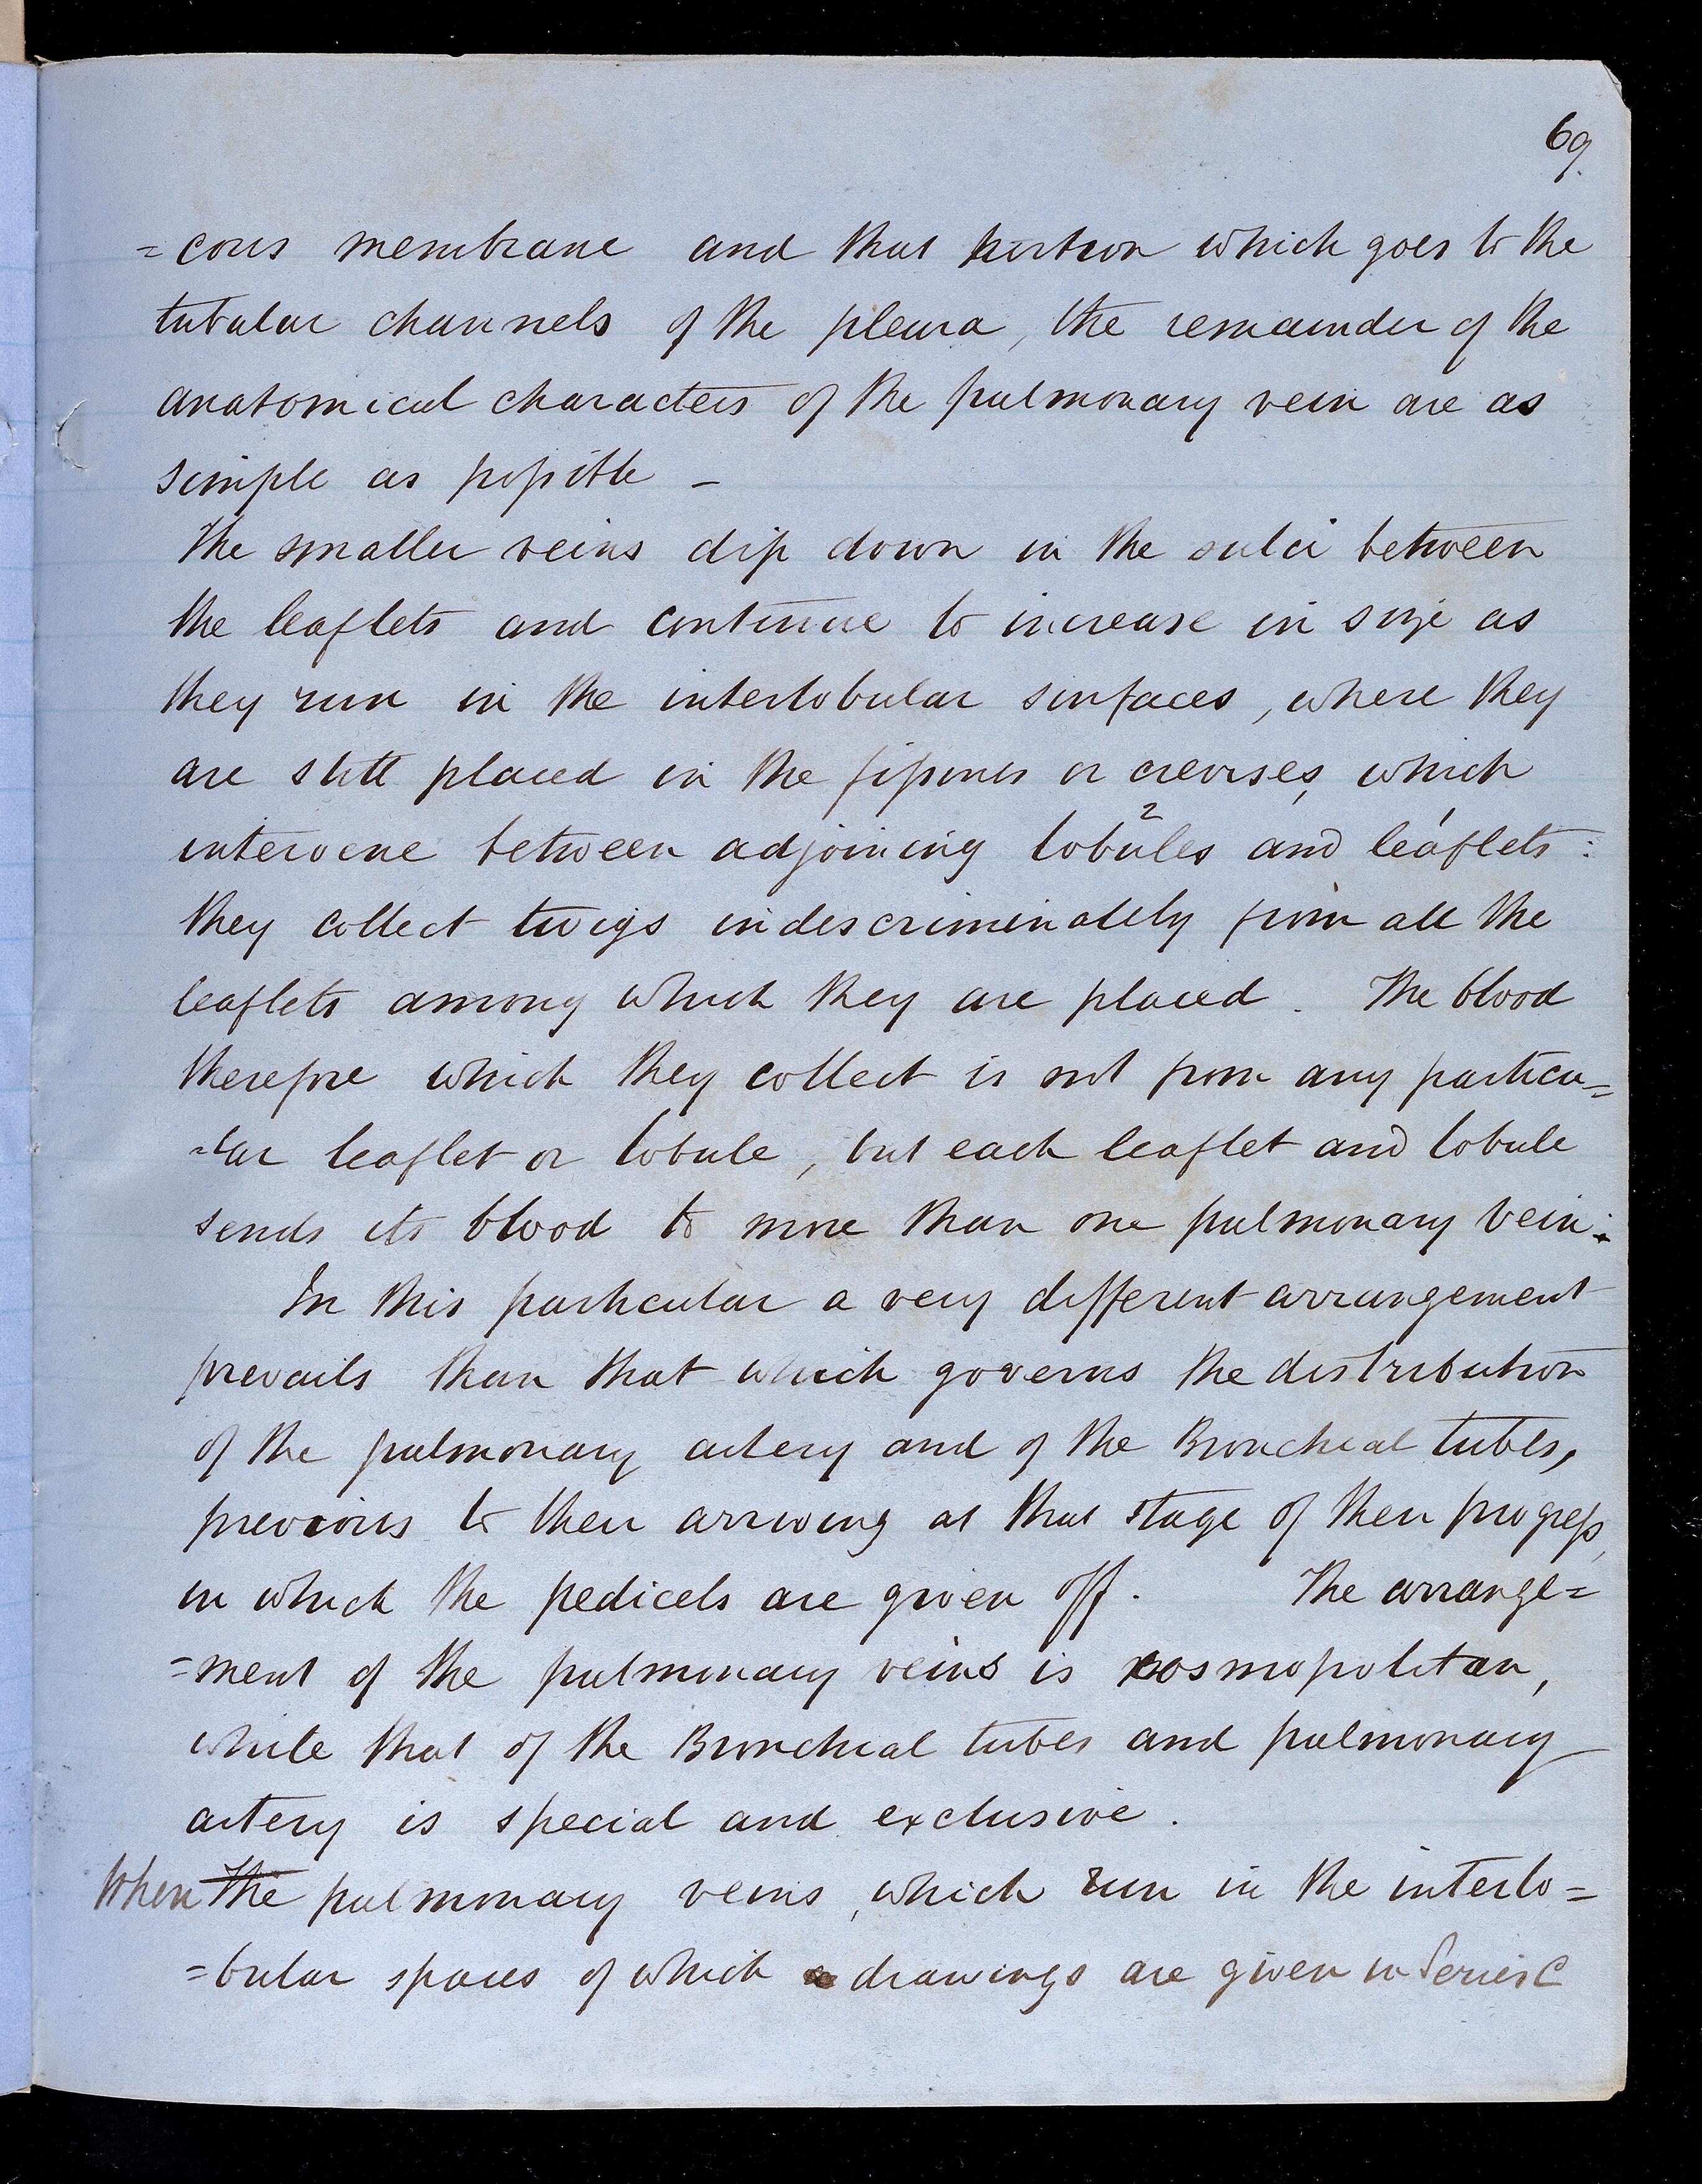 69.
=cous membrane and that portion which goes to the
tubular channels of the pleura, the remainder of the
anatomical characters of the pulmonary vein are as
simple as possible –
The smaller veins dip down in the sulci between
the leaflets and continue to increase in size as
they run in the interlobular surfaces, where they
are still placed in the fissures or crevises, which
intervene between adjoining lobules 2 and leaflets 1:
they collect twigs indescriminately from all the
leaflets among which they are placed. The blood
therefore which they collect is not from any particu=
=lar leaflet or lobule, but each leaflet and lobule
sends its blood to more than one pulmonary vein:
In this particular a very different arrangement
prevails than that which governs the distribution
of the pulmonary artery and of the Broncheal tubes,
previous to their arriving at that stage of their progress,
in which the pedicels are given off. The arrange=
=ment of the pulmonary veins is cosmopolitan,
while that of the Broncheal tubes and pulmonary
artery is special and exclusive.
When The pulmonary veins, which run in the interlo=
=bular spaces of which drawings are given in Series C